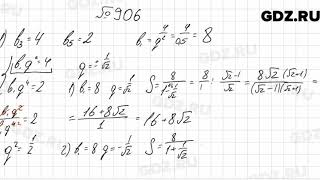 GDZ.RU
№906
1) b₃=4 b₅=2 b₁=4/q²=4/0,5=8
b₁q²=4 q=±1/√2
b₁q⁴=2 1) b₁=8 q=1/√2 S=8/(1-1/√2)=8/1 : (√2-1)/√2=8√2(√2+1)/((√2-1)(√2+1))=
=2 =(16+8√2)/1=16+8√2
q²=1/2 2) b₁=8 q=-1/√2 S=8/(1+1/√2)